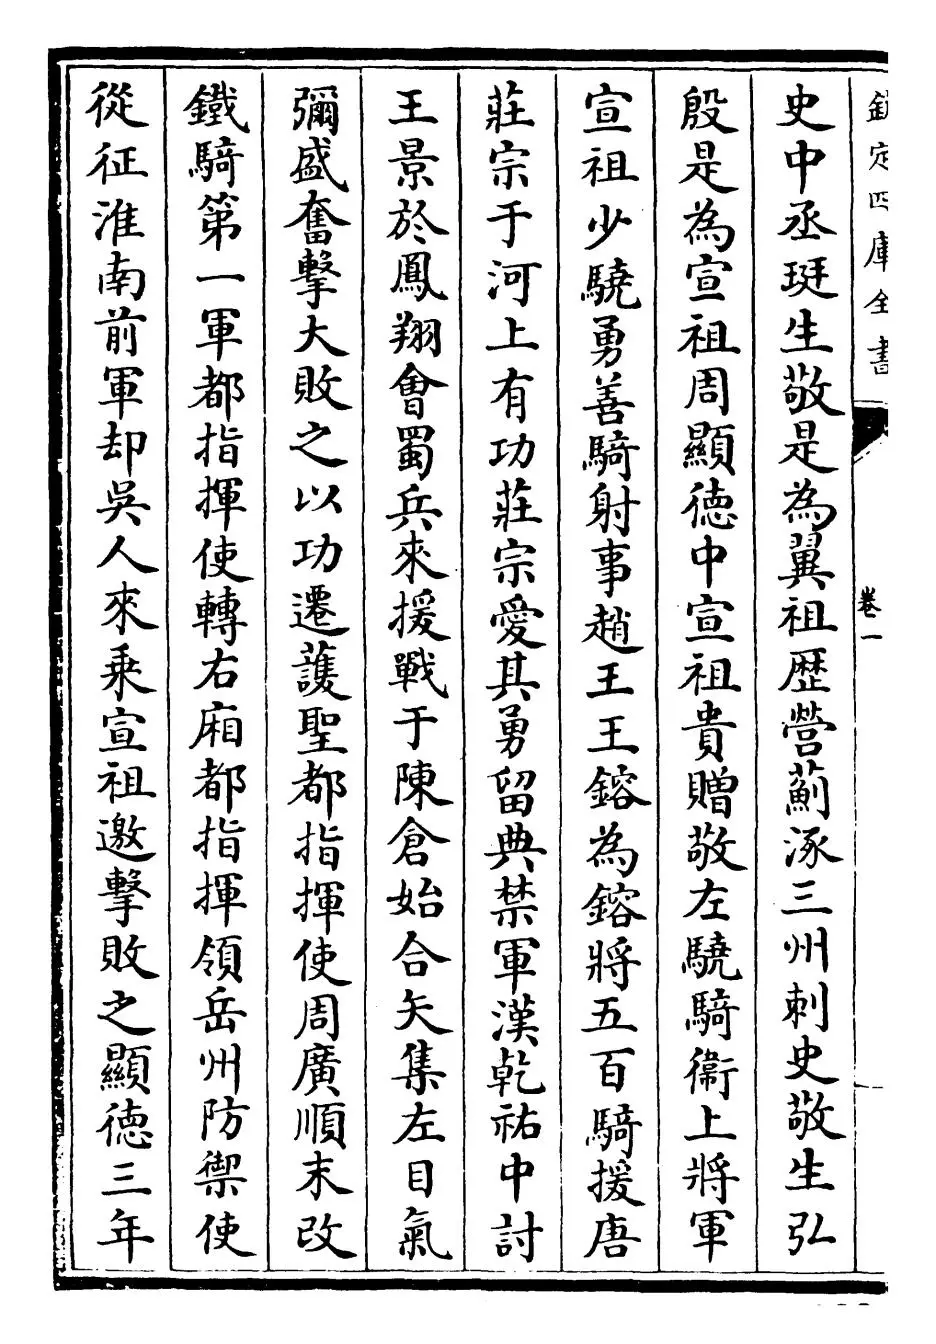 欽定四庫全書
卷一
史中丞珽生敬是為翼祖歴營薊涿三州刺史敬生弘
殷是為宣祖周顯徳中宣祖貴贈敬左驍騎衞上將軍
宣祖少驍勇善騎射事趙王王鎔為鎔將五百騎援唐
莊宗于河上有功莊宗愛其勇留典禁軍漢乾祐中討
王景於鳳翔會蜀兵來援戰于陳倉始合矢集左目氣
彌盛奮擊大敗之以功遷䕶聖都指揮使周廣順末改
鐵騎第一軍都指揮使轉右廂都指揮領岳州防禦使
從征淮南前軍却吳人來乗宣祖邀擊敗之顯徳三年